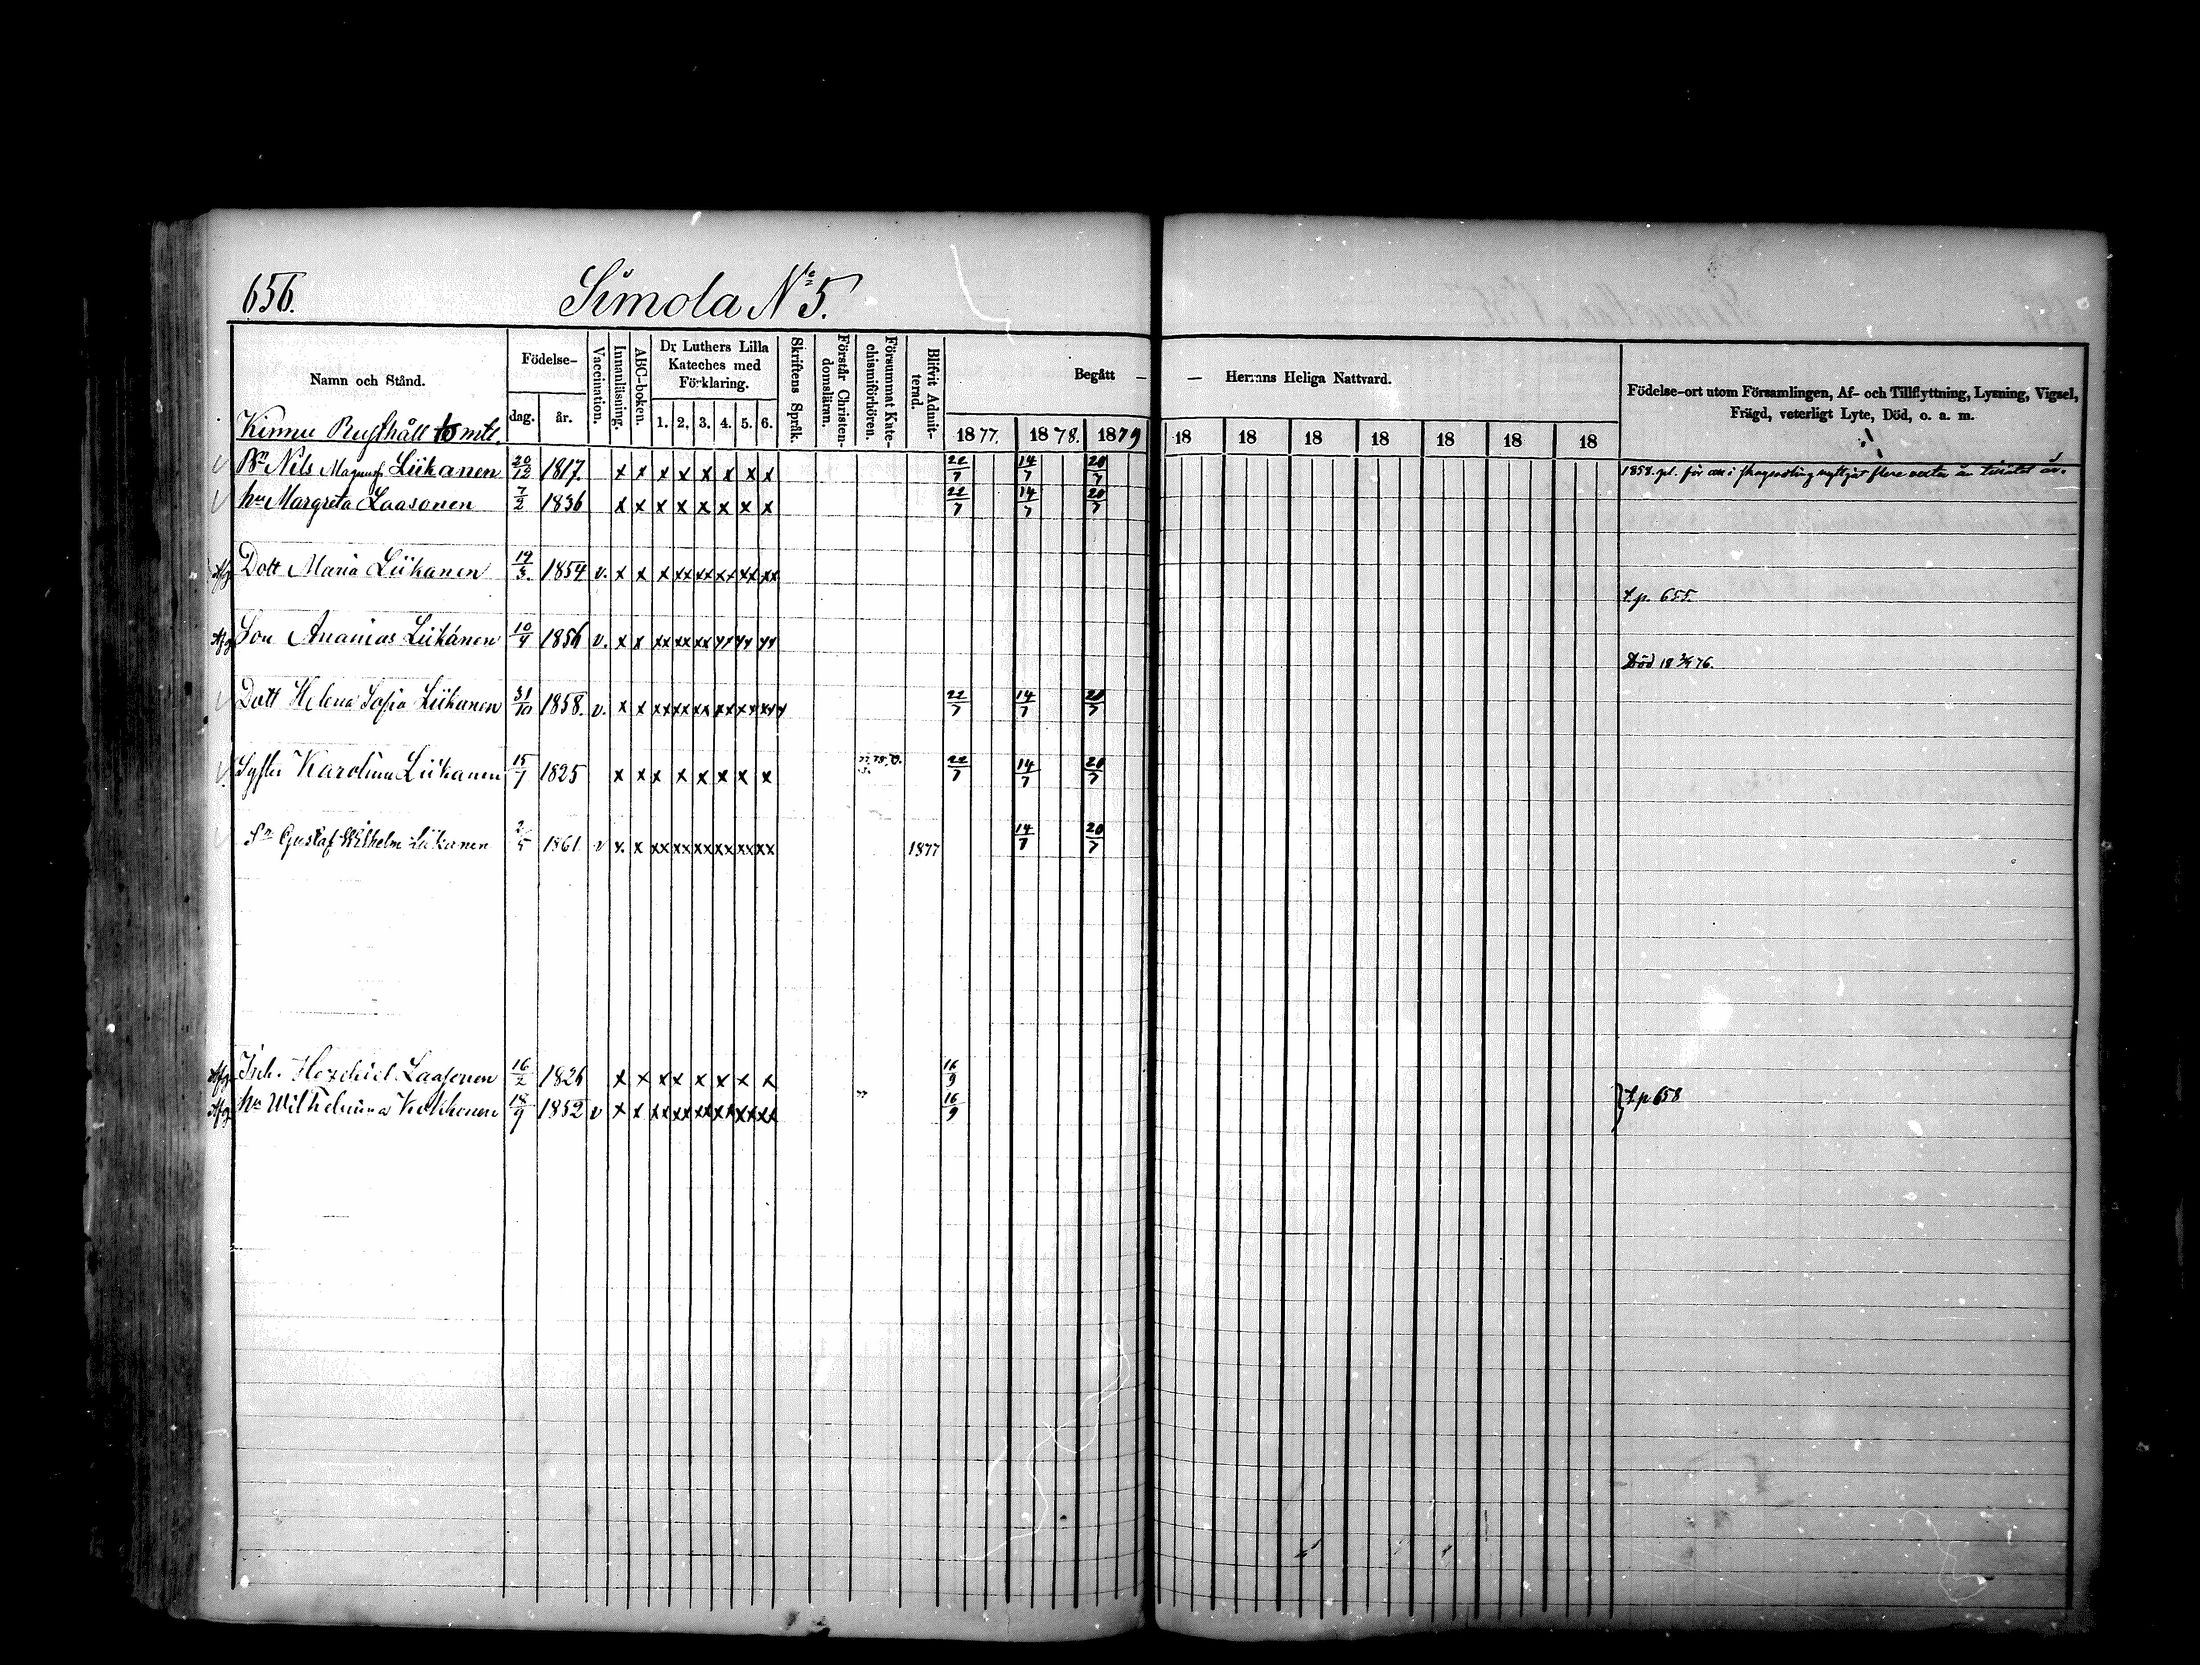 656.
Simola No 5.
Namn och Stånd.
Födelse-
dag.
år.
Vaccination.
Innanläsning.
ABC-boken.
Dr Luthers Lilla
Kateches med
Förklaring.
1. 2. 3. 4. 5. 6.
Skriftens Språk.
Förstår Christen-
domsläran.
Försummat Kate-
chismiförhören.
Blifvit Admit-
terad.
Begått — — Herrans Heliga Nattvard.
1877. 1878. 1879 18 18 18 18 18 18 18
Födelse-ort utom Församlingen, Af- och Tillflyttning, Lysning, Vigsel,
Frägd, veterligt Lyte, Död, o. a. m.
Kinnu Rusthåll mtl.
Bn Nils Magnusson Liikanen 20/12 1817. x x x x x x x x 22/7 14/7 20/7 1858. pl. för
hu Margreta Laasonen 7/2 1836 x x x x x x x x 22/7 14/7 20/7
Dott Maria Liikanen 19/3. 1854 v. x x x xx xx xx xx xx
f.p. 655.
Son Ananias Liikanen 1856 v. x x xx xx xx
Död 18 76.
Dott Helena Sofia Liikanen 31/10 1858. v. x x xx xx xx xx xx 22/7 14/7 20/7
Syster Karolina Liikanen 15/7 1825 x x x x x x x x 22/7 14/7 20/7
Sn Gustaf Wilhelm Liikanen 1861 v x x xx xx xx xx xx xx 1877 14/7 20/7
Inh. Hezekiel Laasonen 16/2 1826 x x x x x x x x 16/9
hu Wilhelmina Kekkonen 18/9 1852 v x x xx xx xx xx xx xx 16/9 f.p 658